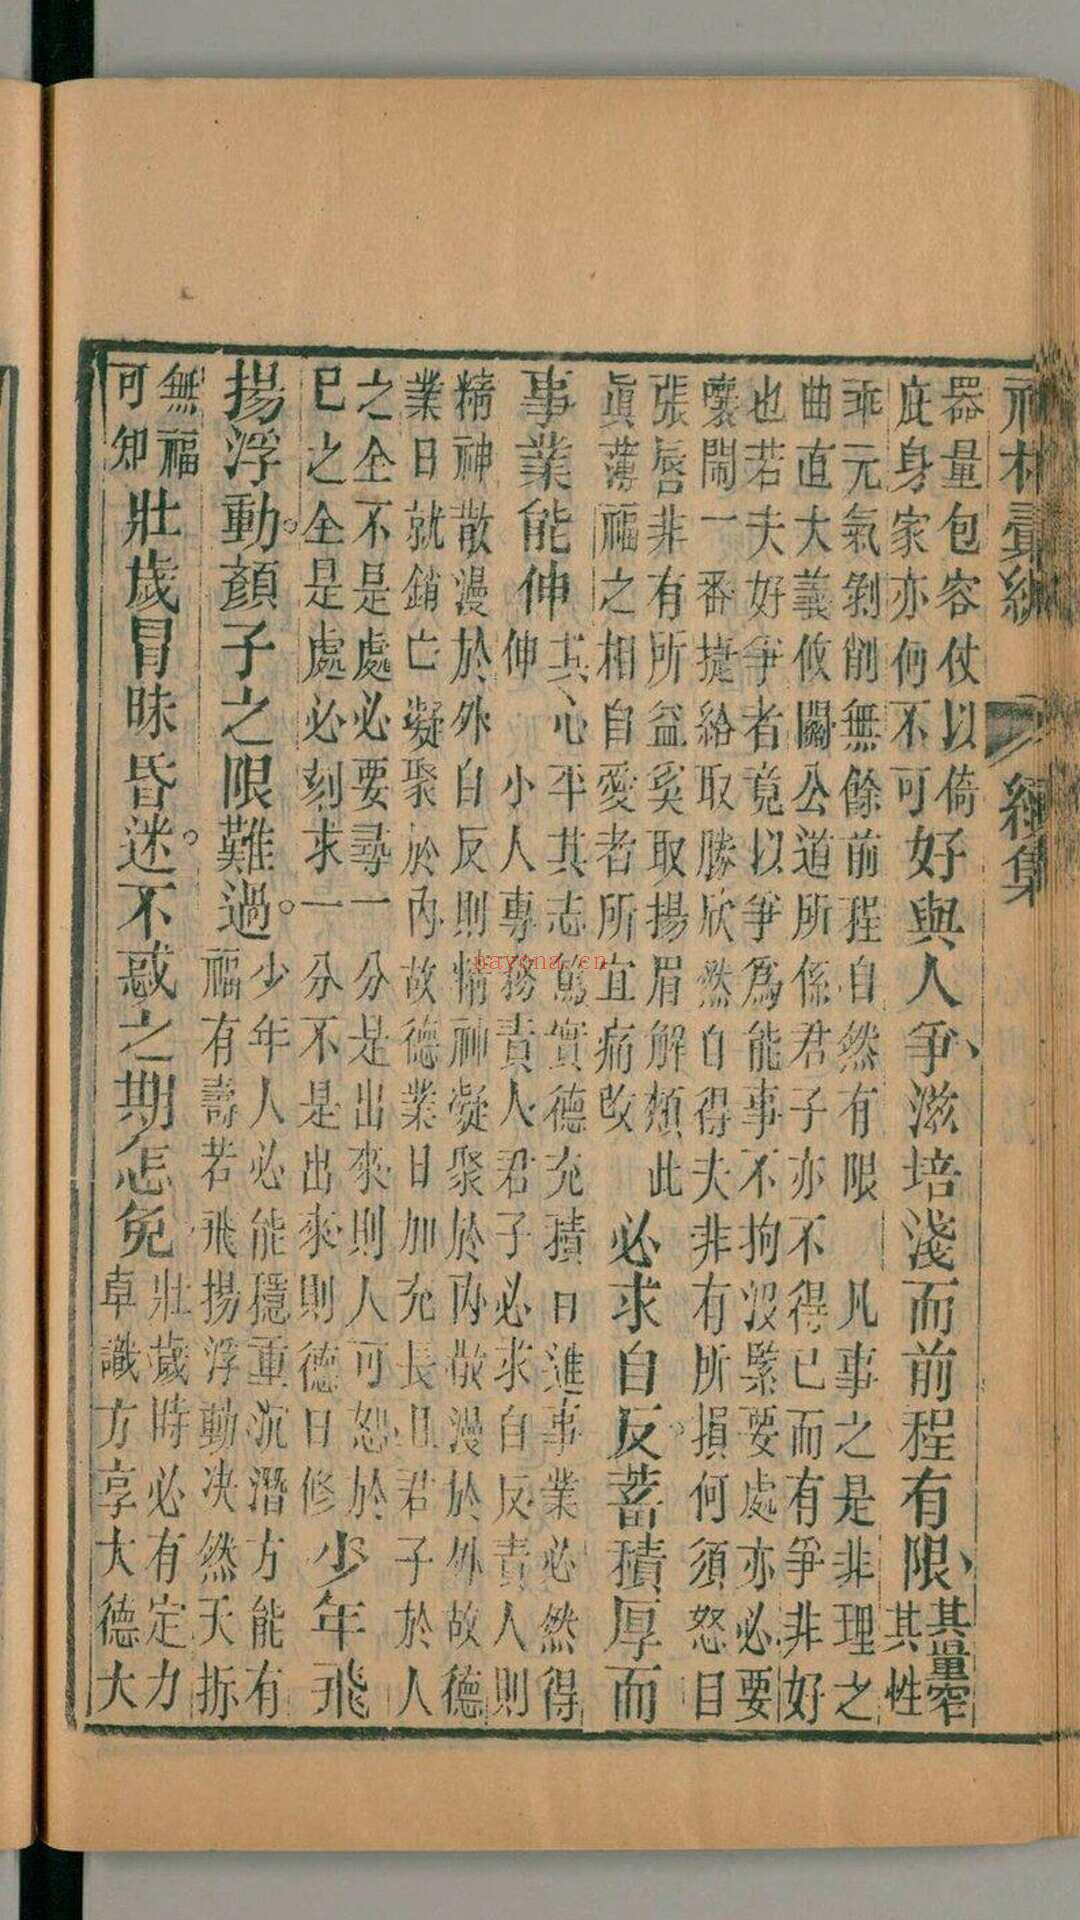 彙編 經集
器量包容仗以倚
庇身家亦何不可
好與人爭滋培淺而前程有限
其量窄
其性
乖元氣剝削無餘前程自然有限　凡事之是非理之
曲直大義攸關公道所係君子亦不得已而有爭非好
也若夫好爭者竟以爭爲能事不拘沒緊要處亦必要
嚷鬧一番捷給取勝欣然自得夫非有所損何須怒目
張唇非有所益奚取揚眉解頹此
眞薄福之相自愛者所宜痛改
必求自反蓄積厚而
事業能伸
其心平其志篤實德充積日進事業必然得
伸　小人專務責人君子必求自反責人則
精神散漫於外自反則精神凝聚於內散漫於外故德
業日就銷亡凝聚於內故德業日加充長且君子於人
之全不是處必要尋一分是出來則人可恕於
已之全是處必刻求一分不是出來則德日修
少年飛
揚浮動。顏子之限難過。
少年人必能穩重沉潛方能有
福有壽若飛揚浮動决然天折
無福
可知
壯歲冒昧昏迷。不惑之期怎免
壯歲時必有定力
卓識方享大德大
nayona.cn